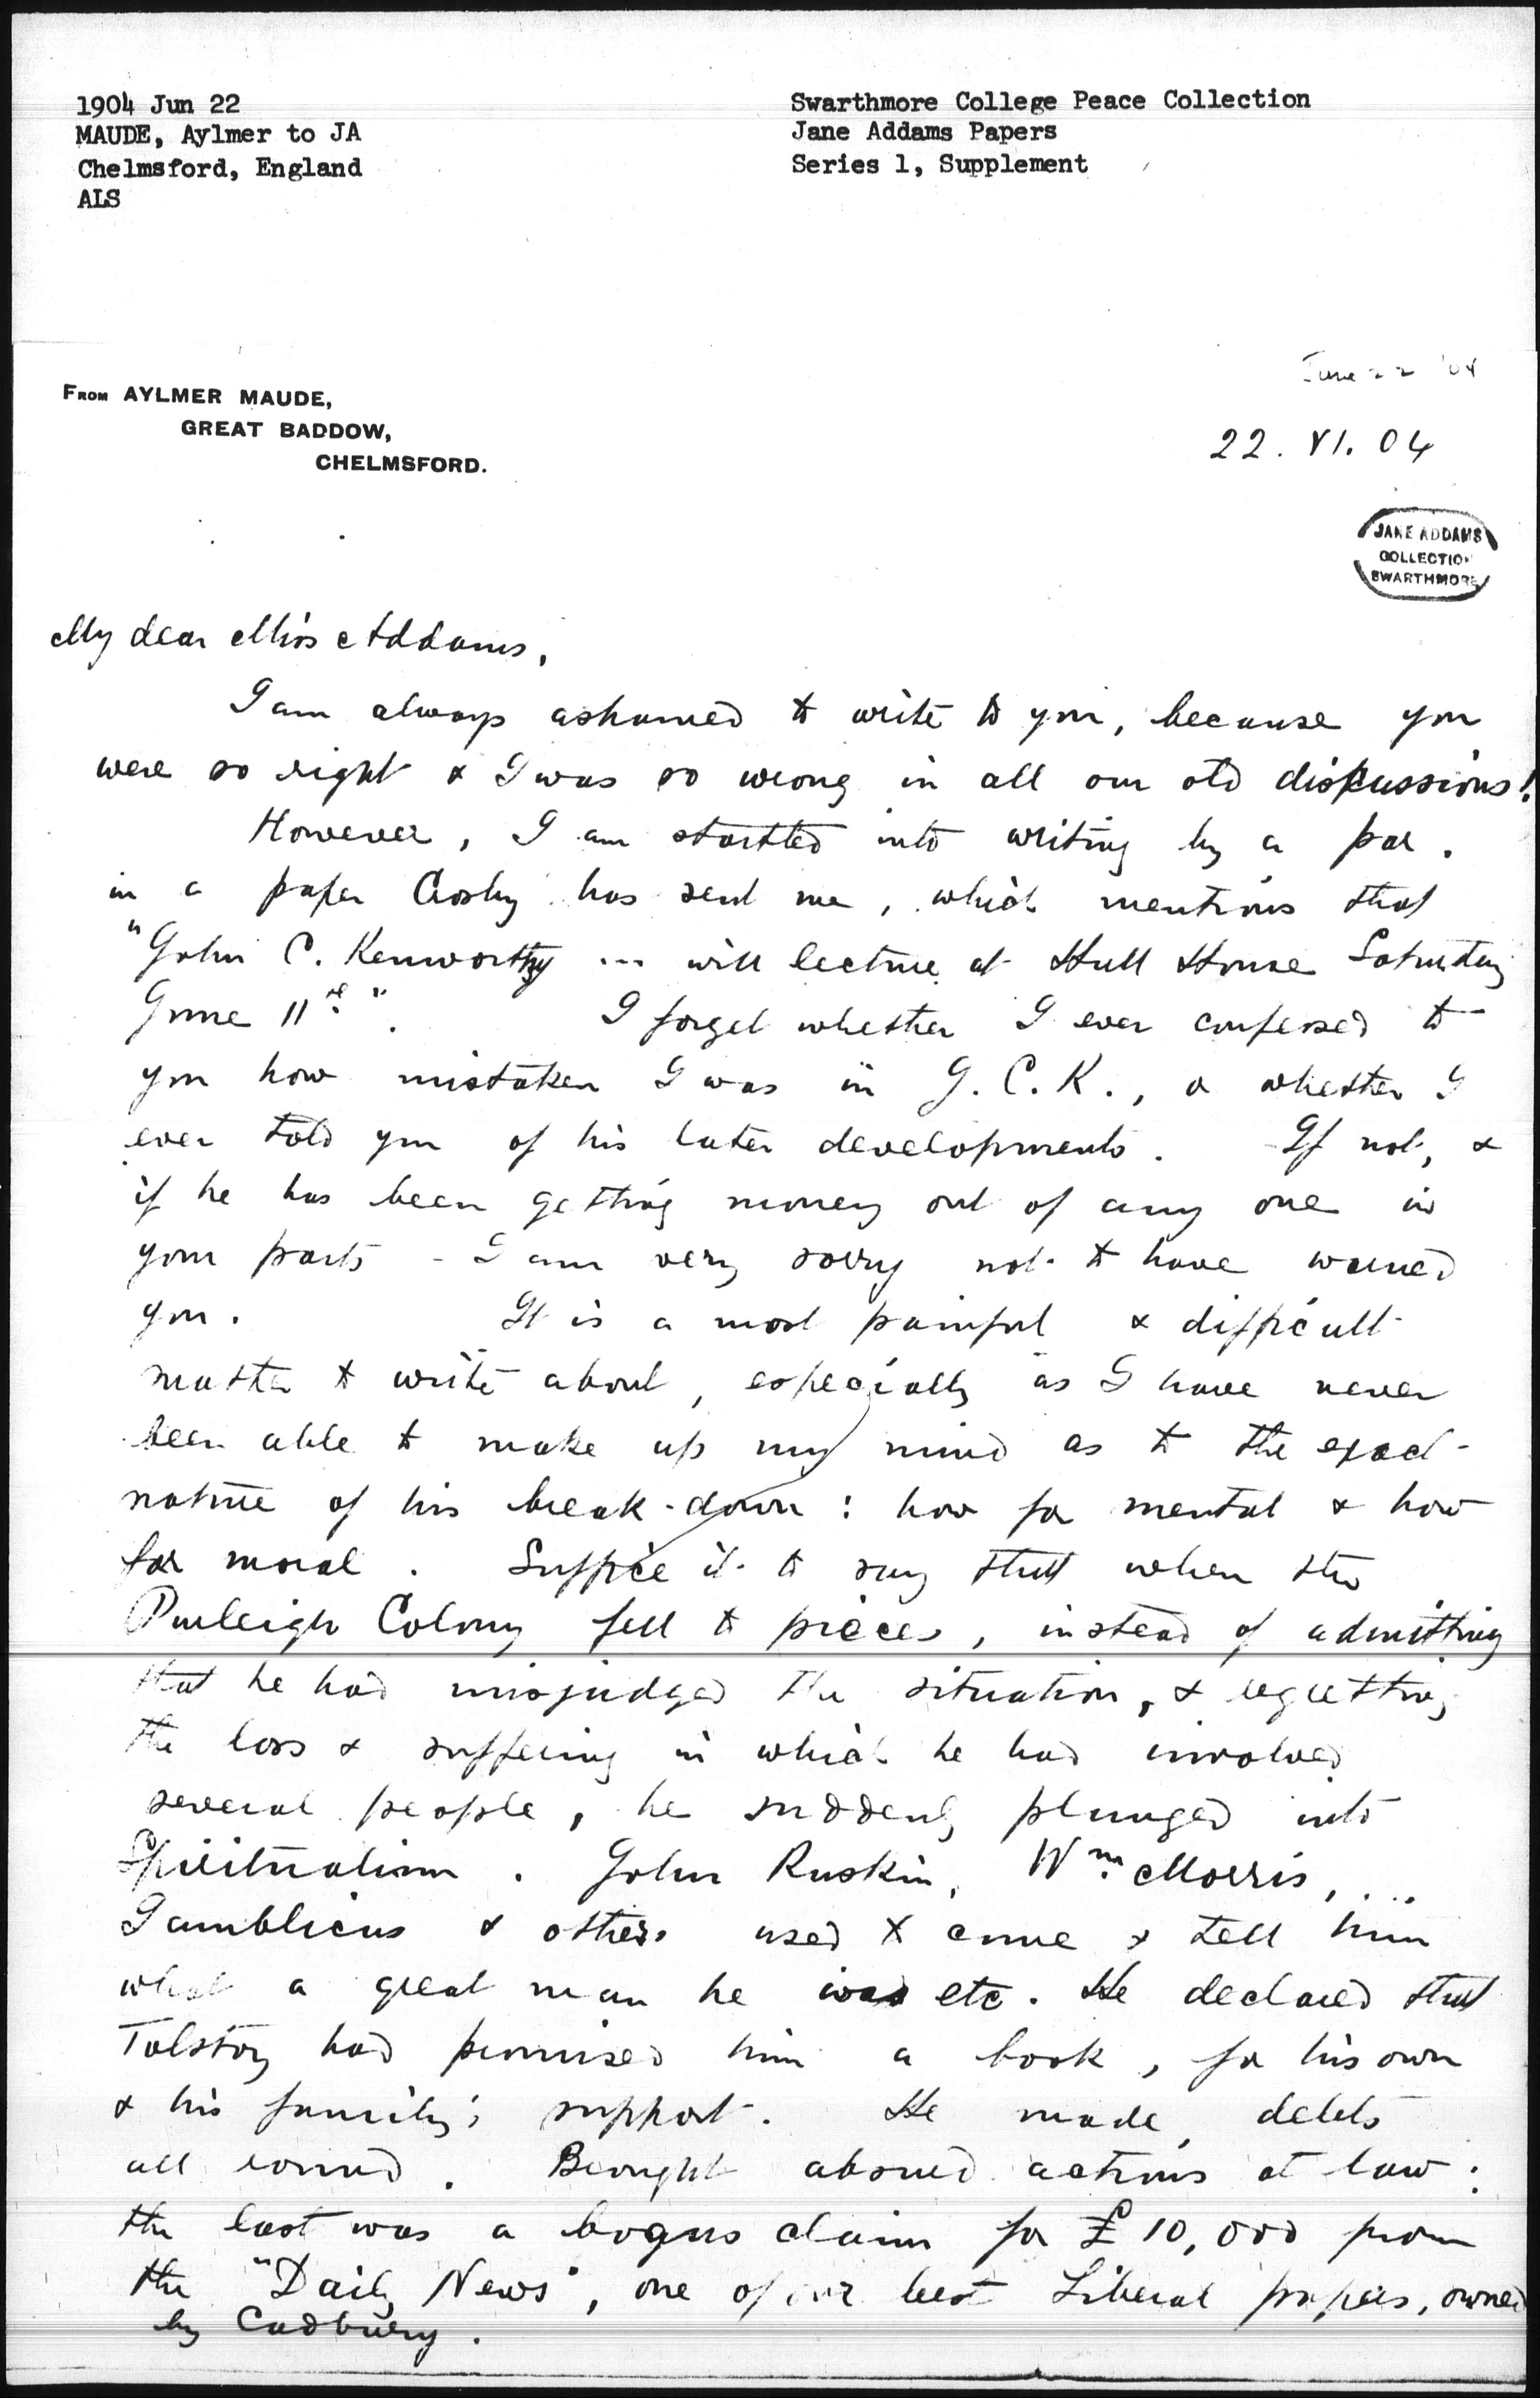 1904 Jun 22
MAUDE, Aylmer to JA
Chelmsford, England
ALS
Swarthmore College Peace Collection
Jane Addams Papers
Series 1, Supplement
June 22 '04
From AYLMER MAUDE,
GREAT BADDOW,
CHELMSFORD.
22. VI. 04
JANE ADDAMS
COLLECTION
SWARTHMORE
My dear Miss Addams,
I am always ashamed to write to you, because you
were so right & I was so wrong in all our old discussions!
However, I am startled into writing by a par.
in a paper Crosby has sent me, which mentions that
"John C. Kenworthy ... will lecture at Hull House Saturday
June 11th".   I forget whether I ever confessed to
you how mistaken I was in J. C. K., or whether I
ever told you of his later developments. If not, &
if he has been getting money out of any one in
your parts - I am very sorry not to have warned
you.   It is a most painful & difficult
matter to write about, especially as I have never
been able to make up my mind as to the exact
nature of his break-down: how far mental & how
far moral. Suffice it to say that when the
Purleigh Colony fell to pieces, instead of admitting
that he had misjudged the situation, & regretting
the loss & suffering in which he had involved
several people, he suddenly plunged into
Spiritualism. John Ruskin, Wm. Morris, ...
Iamblicus & others used to come & tell him
what a great man he was etc. He declared that
Tolstoy had promised him a book, for his own
& his family's support. He made debts
all round. Brought absurd actions at law:
the last was a bogus claim for £10,000 from
the "Daily News", one of our best Liberal papers, owned
by Cadbury.